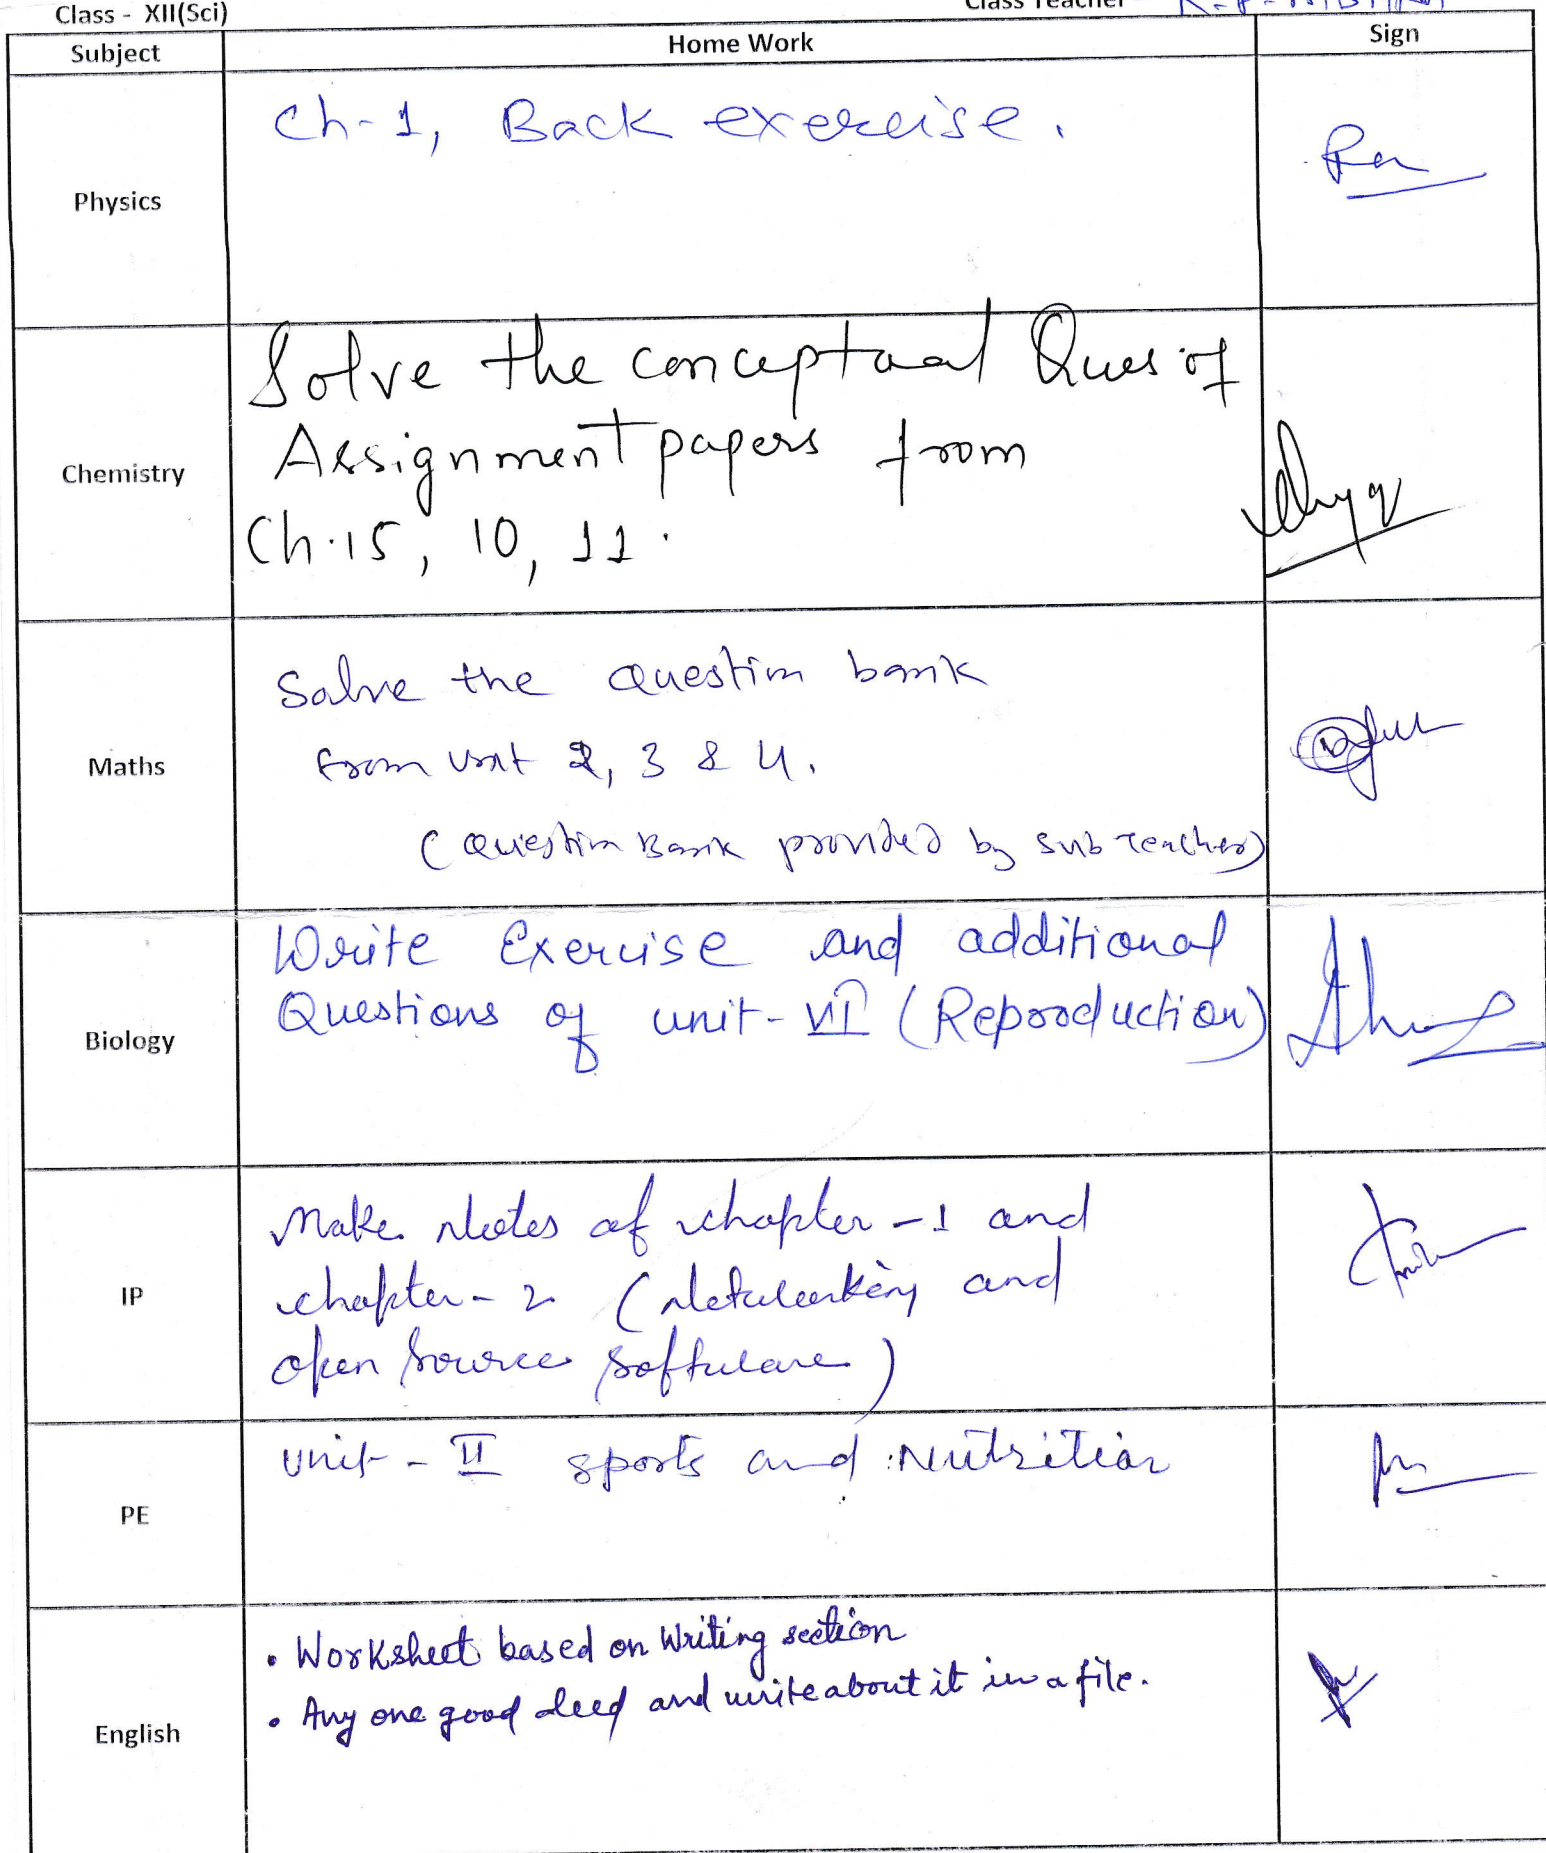 Class - XII(Sci)
Class Teacher
Subject
Home Work
Sign
Physics
Ch-1, Back exercise.
Chemistry
Solve the conceptual Ques of
Assignment papers from
Ch.15, 10, 11.
Maths
Solve the Question bank
from unit 2, 3 & 4.
(Question Bank provided by Sub Teacher)
Biology
Write Exercise and additional
Questions of unit-VI (Reproduction)
IP
Make Notes of chapter-1 and
chapter-2 (Networking and
open source software)
PE
Unit-II sports and Nutrition
English
• Worksheet based on Writing section
• Any one good deed and write about it in a file.